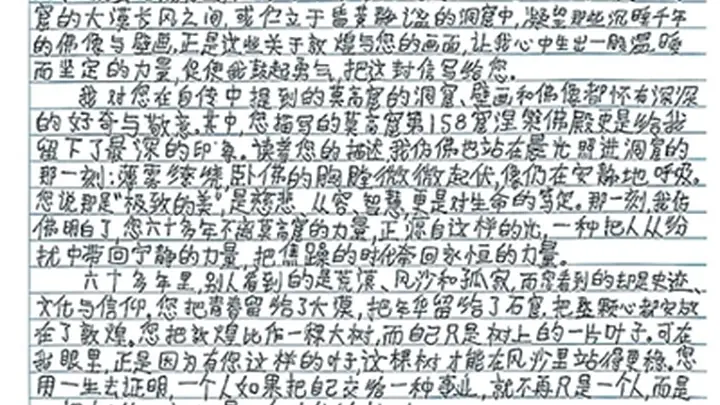 窟的大漠长风之间,或伫立于昏黄静谧的洞窟中,凝望那些沉睡千年
的佛像与壁画,正是这些关于敦煌与您的画面,让我心中生出一股温暖
而坚定的力量,促使我鼓起勇气,把这封信写给您。
我对您在自传中提到的莫高窟的洞窟、壁画和佛像都怀有深深
的好奇与敬意。其中,您描写的莫高窟第158窟涅槃佛殿更是给我
留下了最深的印象。读着您的描述,我仿佛也站在晨光照进洞窟的
那一刻:薄雾缭绕,卧佛的胸膛微微起伏,像仍在安静地呼吸。
您说那是“极致的美”,是慈悲、从容、智慧,更是对生命的笃定。那一刻,我仿
佛明白了,您六十多年不离莫高窟的力量,正源自这样的光,一种把人从纷
扰中带回宁静的力量,把焦躁的时代带回永恒的力量。
六十多年里,别人看到的是荒漠、风沙和孤寂,而您看到的却是史迹、
文化与信仰。您把青春留给了大漠,把年华留给了石窟,把整颗心都安放
在了敦煌。您把敦煌比作一棵大树,而自己只是树上的一片叶子。可在
我眼里,正是因为有您这样的叶子,这棵树才能在风沙里站得更稳。您
用一生去证明,一个人如果把自己交给一种事业,就不再只是一个人,而是